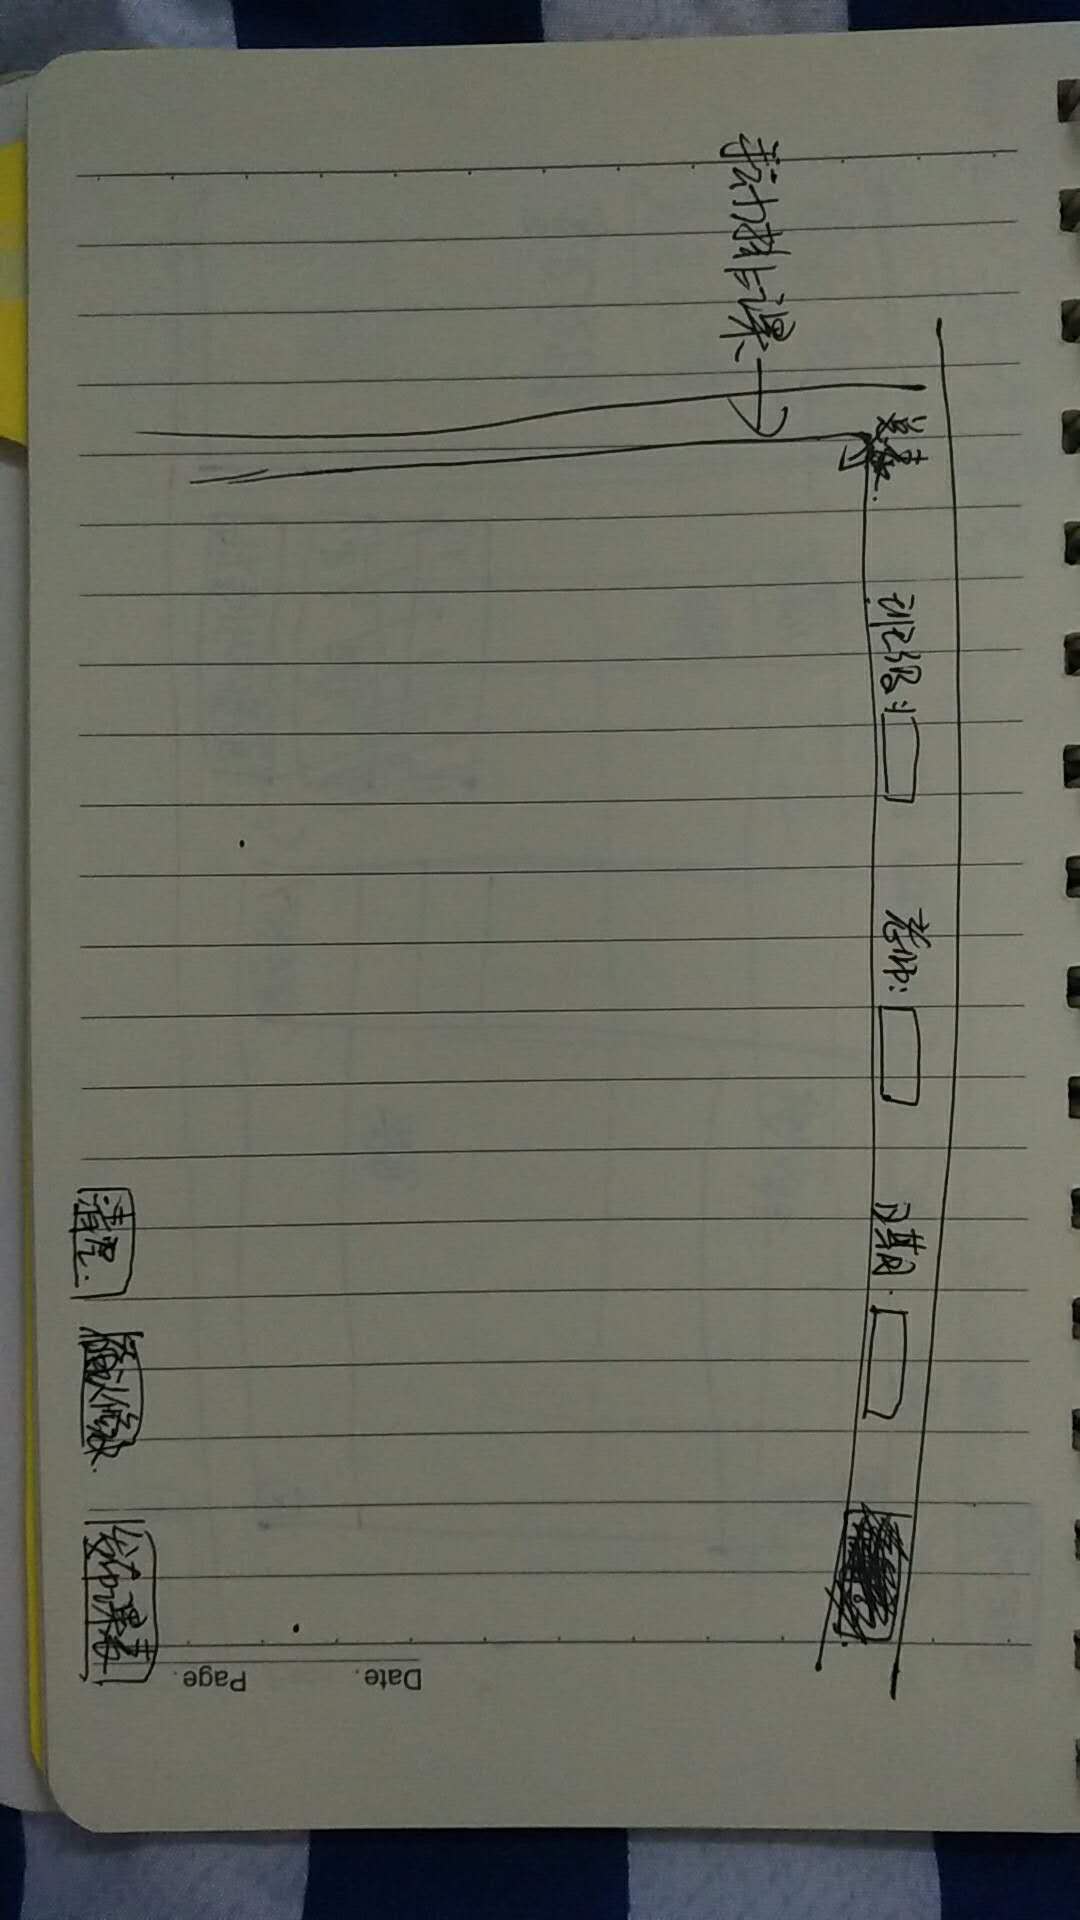 总表 班级: 老师: 日期:
手动排课
清空 确认修改 发布课表
Date.
Page.